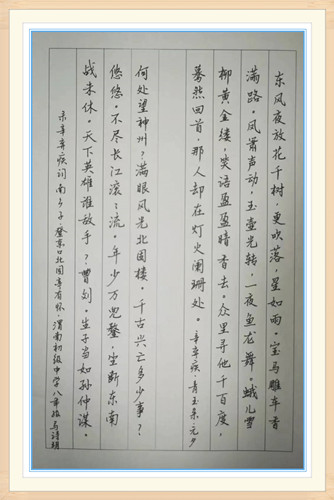 东风夜放花千树，更吹落，星如雨。宝马雕车香
满路。凤箫声动，玉壶光转，一夜鱼龙舞。蛾儿雪
柳黄金缕，笑语盈盈暗香去。众里寻他千百度，
蓦然回首，那人却在灯火阑珊处。辛弃疾·青玉案·元夕
何处望神州？满眼风光北固楼。千古兴亡多少事？
悠悠。不尽长江滚滚流。年少万兜鍪，坐断东南
战未休。天下英雄谁敌手？曹刘。生子当如孙仲谋。
录辛弃疾词 南乡子·登京口北固亭有怀·渭南初级中学八年级